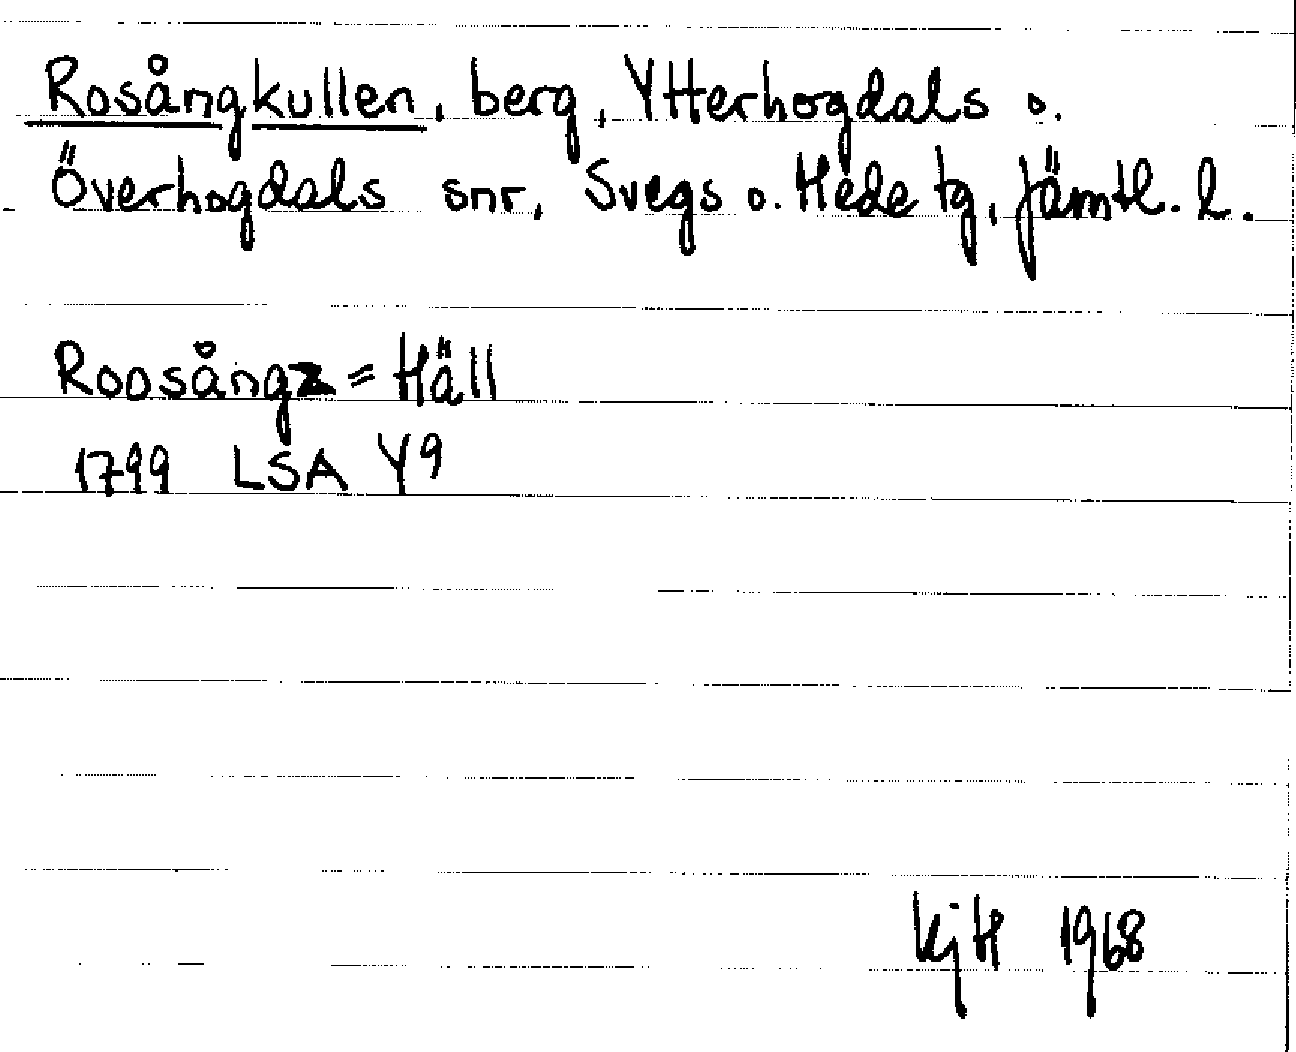 Rosångkullen, berg, Ytterhogdals o.
Överhogdals snr, Svegs o. Hede tg, Jämtl. l.
Roosångz = Häll
1799 LSA Y9
KjH 1968